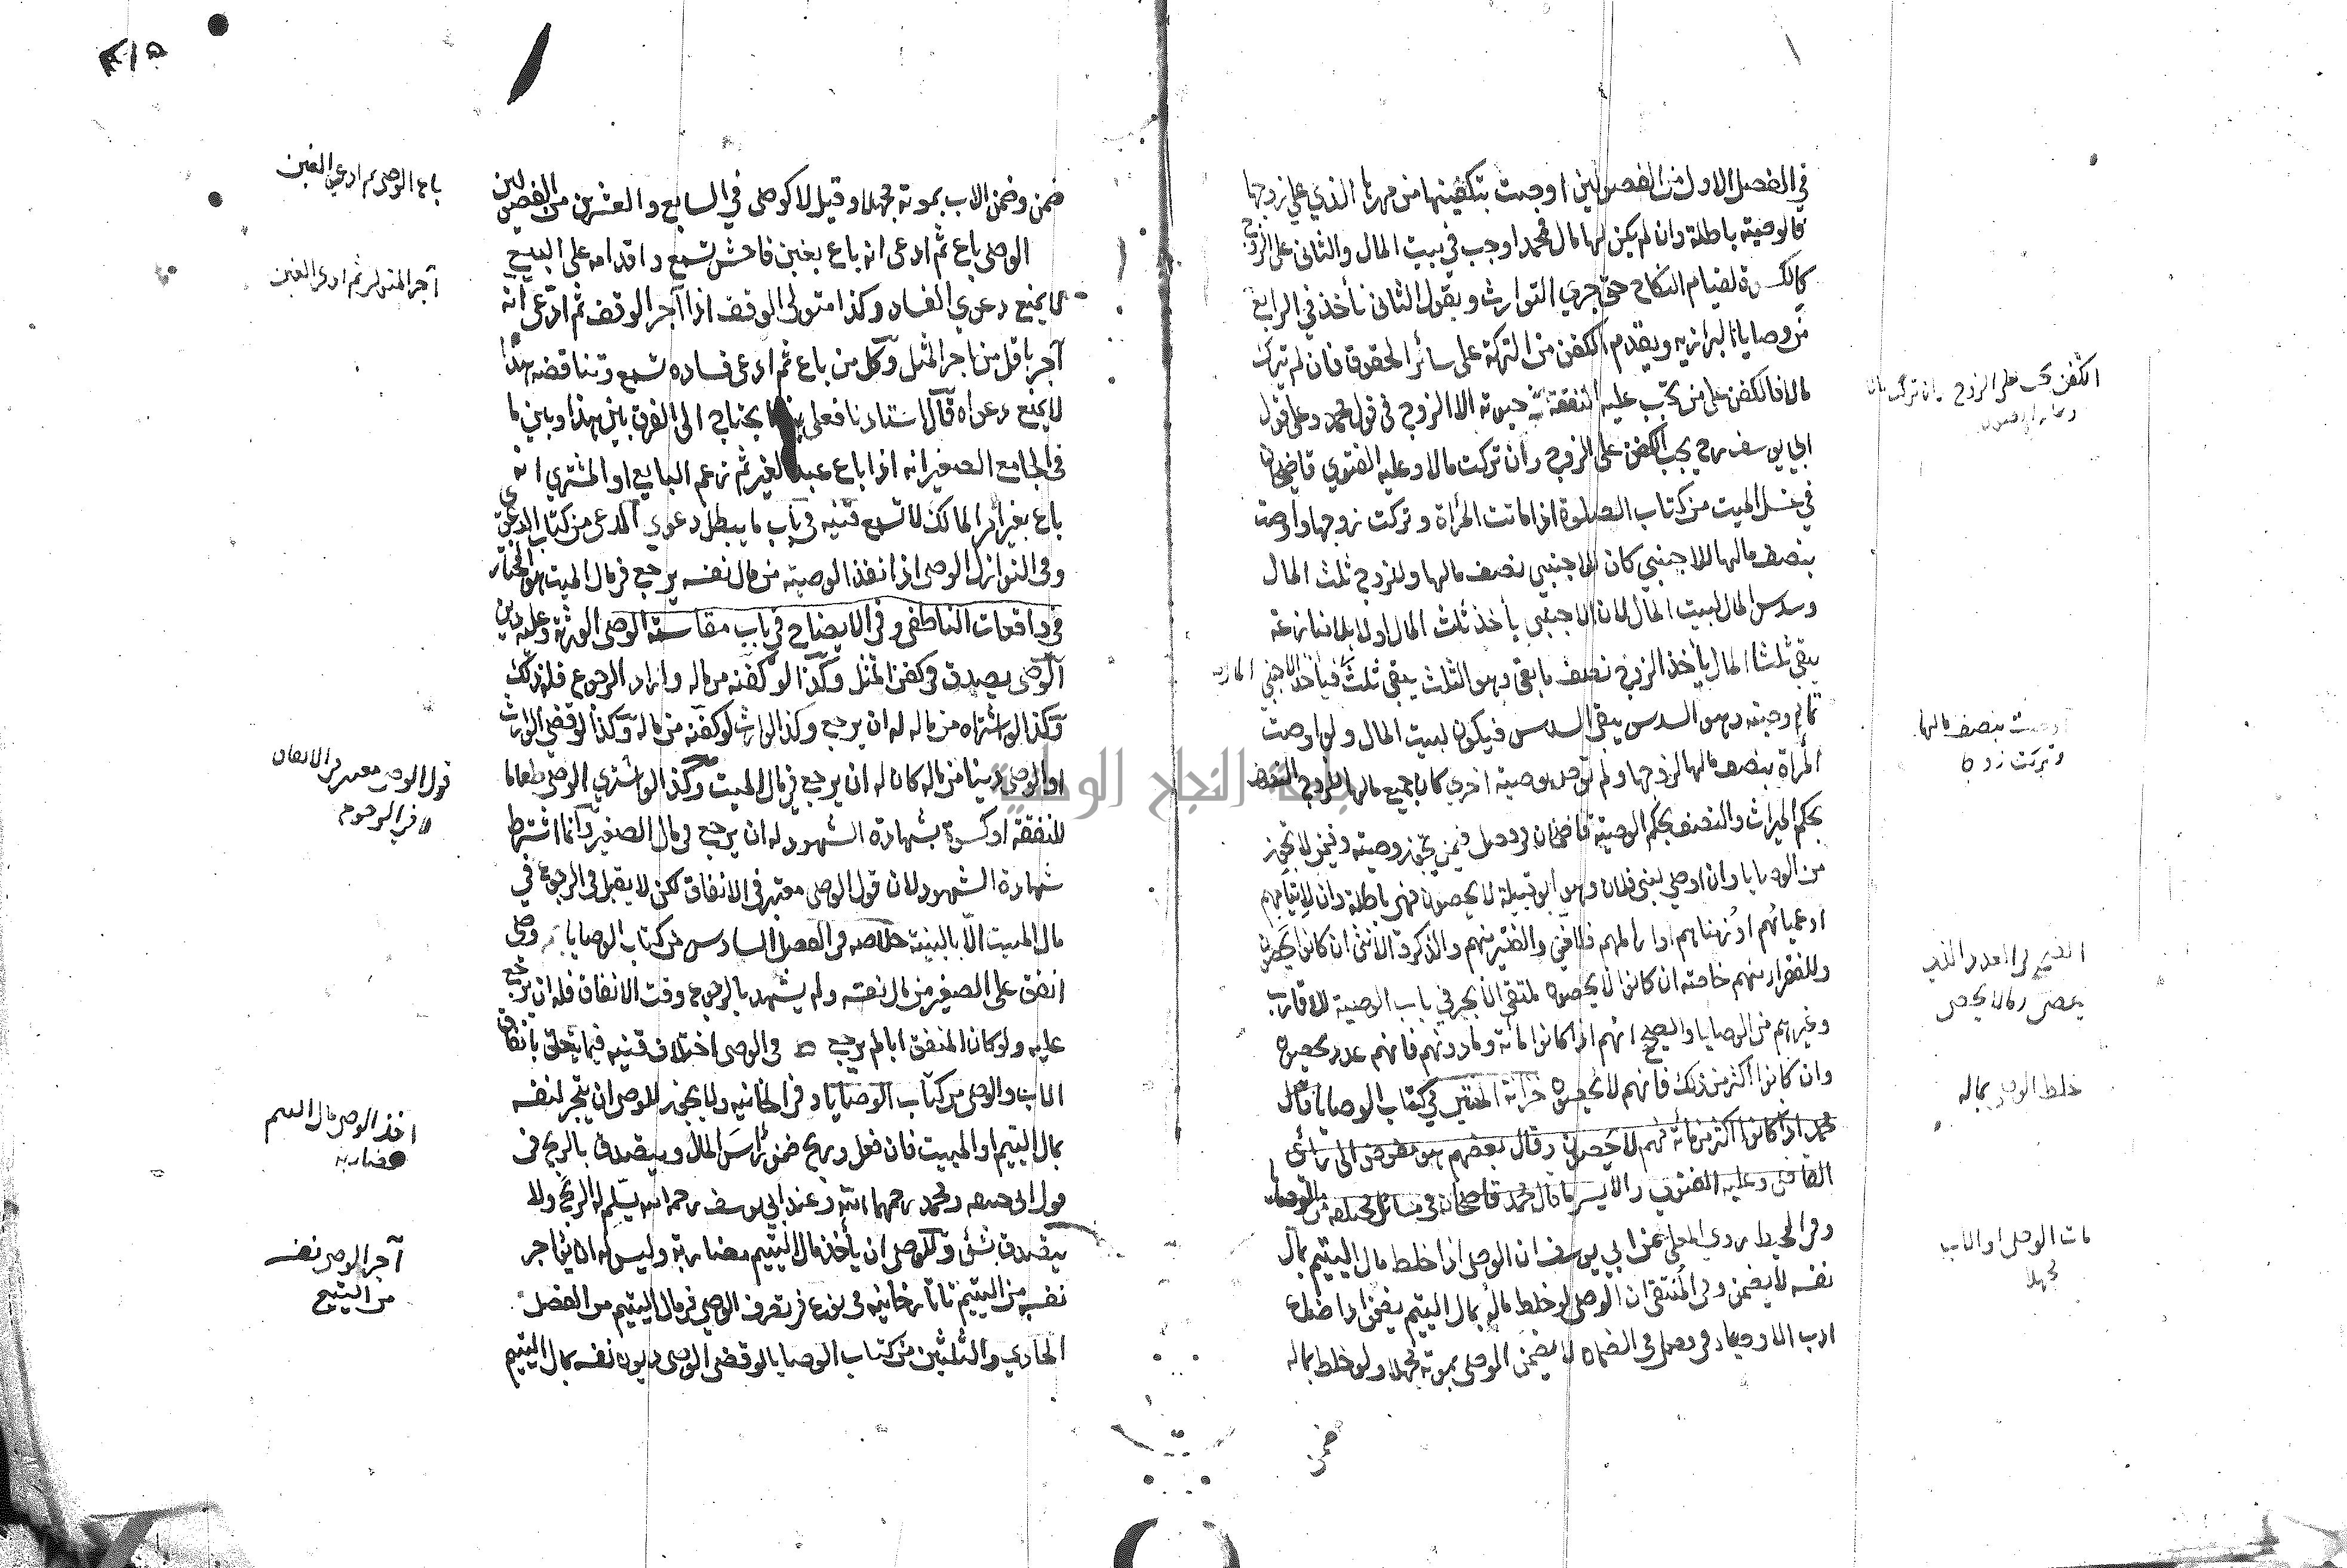 في الفصل الاول من الفصولين اوصت بتكفينها من مهرها الذي على زوجها
فالوصية باطلة وان لم يكن لها مال فمحمد اوجب في بيت المال والثاني على الزوج
كالكسوة لقيام النكاح حتى جرى التوارث وبقول الثاني نأخذ في الرابع
من وصايا البزازيه ويقدم الكفن من التركة على سائر الحقوق فان لم تترك
مالا فالكفن على من تجب عليه النفقة في حيوته الا الزوج في قول محمد وعلى قول
ابي يوسف رح يجب الكفن على الزوج وان تركت مالا وعليه الفتوى قاضيخان
في غسل الميت من كتاب الصلوة اذا ماتت المرأة وتركت زوجها واوصت
بنصف مالها للاجنبي كان للاجنبي نصف مالها وللزوج ثلث المال
وسدس المال لبيت المال لان الاجنبي يأخذ ثلث المال اولا بلا منازعة
يبقى ثلثا المال يأخذ الزوج نصف ما بقى وهو الثلث يبقى ثلث فيأخذ الاجنبي
تمام وصيته وهو السدس يبقى السدس فيكون لبيت المال ولو اوصت
المرأة بنصف مالها لزوجها ولم توص بوصية اخرى كان جميع مالها للزوج النصف
بحكم الميراث والنصف بحكم الوصية قاضيخان في فصل فيمن تجوز وصيته وفيمن لا تجوز
من الوصايا وان اوصى لبني فلان وهو ابو قبيلة لا يحصون فهي باطلة وان لايتامهم
او عميانهم او زمناهم او اراملهم فللغني والفقير منهم والذكر والانثى ان كانوا يحصون
وللفقراء منهم خاصة ان كانوا لا يحصون ملتقى الابحر في باب الوصية للاقارب
وغيرهم من الوصايا والصحيح انهم اذا كانوا مائة وما دونهم فانهم عدد يحصون
وان كانوا اكثر من ذلك فانهم لا يحصون خزانة المفتين في كتاب الوصايا قال
محمد اذا كانوا اكثر من مائة فهم لا يحصون وقال بعضهم هو مفوض الى رأى
القاضي وعليه الفتوى والايسر ما قال محمد قاضيخان في مسائل مختلفة من الوصايا
وفي المحيط روى المعلى عن ابي يوسف ان الوصى اذا خلط مال اليتيم بمال
نفسه لا يضمن وفي المنتقى ان الوصى لو خلط ماله بمال اليتيم يضمن اذا ضاع
ادب الاوصياء في فصل في الضمان لا يضمن الوصى بموته مجهلا ولو خلط بماله
ضمن
الكفن يجب على الزوج وان تركت مالا
اوصت بنصف مالها
وتركت زوجا
يحصى وما لا يحصى
خلط الوصى بماله
مات الوصى او الاب
مجهلا
ضمن وضمن الاب بموته مجهلا وقيل لا كوصى في السابع والعشرين من الفصولين
الوصى باع ثم ادعى انه باع بغبن فاحش تسمع واقدامه على البيع
لا يمنع دعوى الفساد وكذا متولى الوقف اذا آجر الوقف ثم ادعى انه
آجر باقل من اجر المثل وكل من باع ثم ادعى فساده تسمع وتناقضه بهذا
لا يمنع دعواه قال استاذنا فعلى هذا يحتاج الى الفرق بين هذا وبين ما
في الجامع الصغير انه اذا باع عبد الغير ثم زعم البايع او المشتري انه
باع بغير امر المالك لا تسمع قنيه في باب ما يبطل دعوى المدعى من كتاب الدعوى
وفي النوازل الوصى اذا نفذ الوصية من مال نفسه يرجع في مال الميت هو المختار
في واقعات الناطفي وفي الايضاح في باب مقاسمة الوصى الورثة وعليه دين
الوصى يصدق في كفن المثل وكذا لو كفنه من ماله واراد الرجوع فله ذلك
وكذا لو اشتراه من ماله له ان يرجع وكذا الوارث لو كفنه من ماله وكذا لو قضى الوارث
او الوصى دينا من ماله كان له ان يرجع في مال الميت وكذا لو اشترى الوصى طعاما
للنفقة او كسوة بشهادة الشهود له ان يرجع في مال الصغير وانما اشترط
شهادة الشهود لان قول الوصى معتبر في الانفاق لكن لا يقبل في الرجوع في
مال الميت الا بالبينة خلاصه في الفصل السادس من كتاب الوصايا وصى
انفق على الصغير من مال نفسه ولم يشهد بالرجوع وقت الانفاق فله ان يرجع
عليه ولو كان المنفق ابا لم يرجع في الوصى اختلاف قنيه فيما يتعلق بانفاق
الاب والوصى من كتاب الوصايا وفي الخانيه ولا يجوز للوصى ان يتجر لنفسه
بمال اليتيم او الميت فان فعل وربح ضمن رأس المال ويتصدق بالربح في
قول ابي حنيفه ومحمد رحمهما الله وعند ابي يوسف رحمه الله يسلم له الربح ولا
يتصدق بشئ وللوصى ان يأخذ مال اليتيم مضاربة وليس له ان يؤاجر
نفسه من اليتيم تاتارخانيه في نوع في تصرف الوصى في مال اليتيم من الفصل
الحادي والثلثين من كتاب الوصايا لو قضى الوصى ديون نفسه بمال اليتيم
باع الوصى ثم ادعى الغبن
آجر المتولى ثم ادعى الغبن
قول الوصى معتبر في الانفاق
لا في الرجوع
اخذ الوصى مال اليتيم
مضاربة
آجر الوصى نفسه
من اليتيم